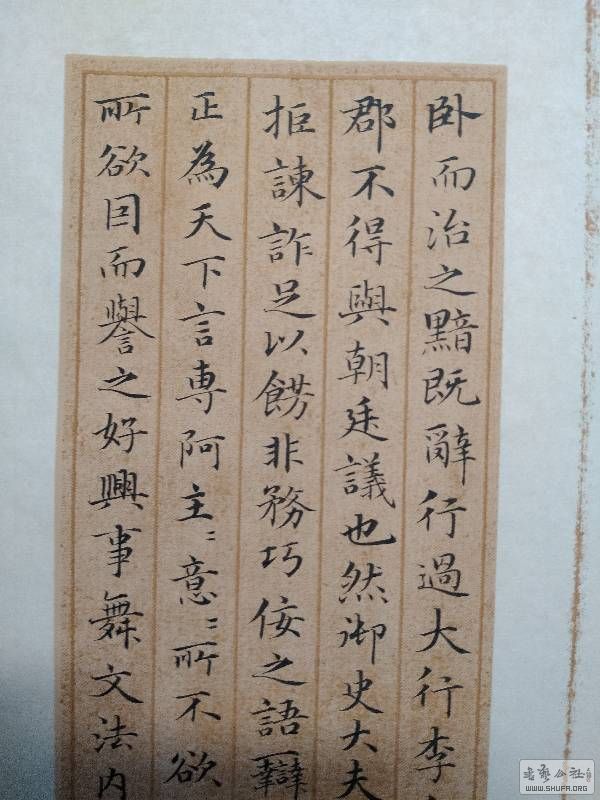 卧而治之黯既辭行過大行李
郡不得與朝廷議也然御史大夫
拒諫詐足以餝非務巧佞之語辯
正為天下言專阿主〻意〻所不欲
所欲因而譽之好興事舞文法内
書藝公社
WWW.SHUFA.ORG